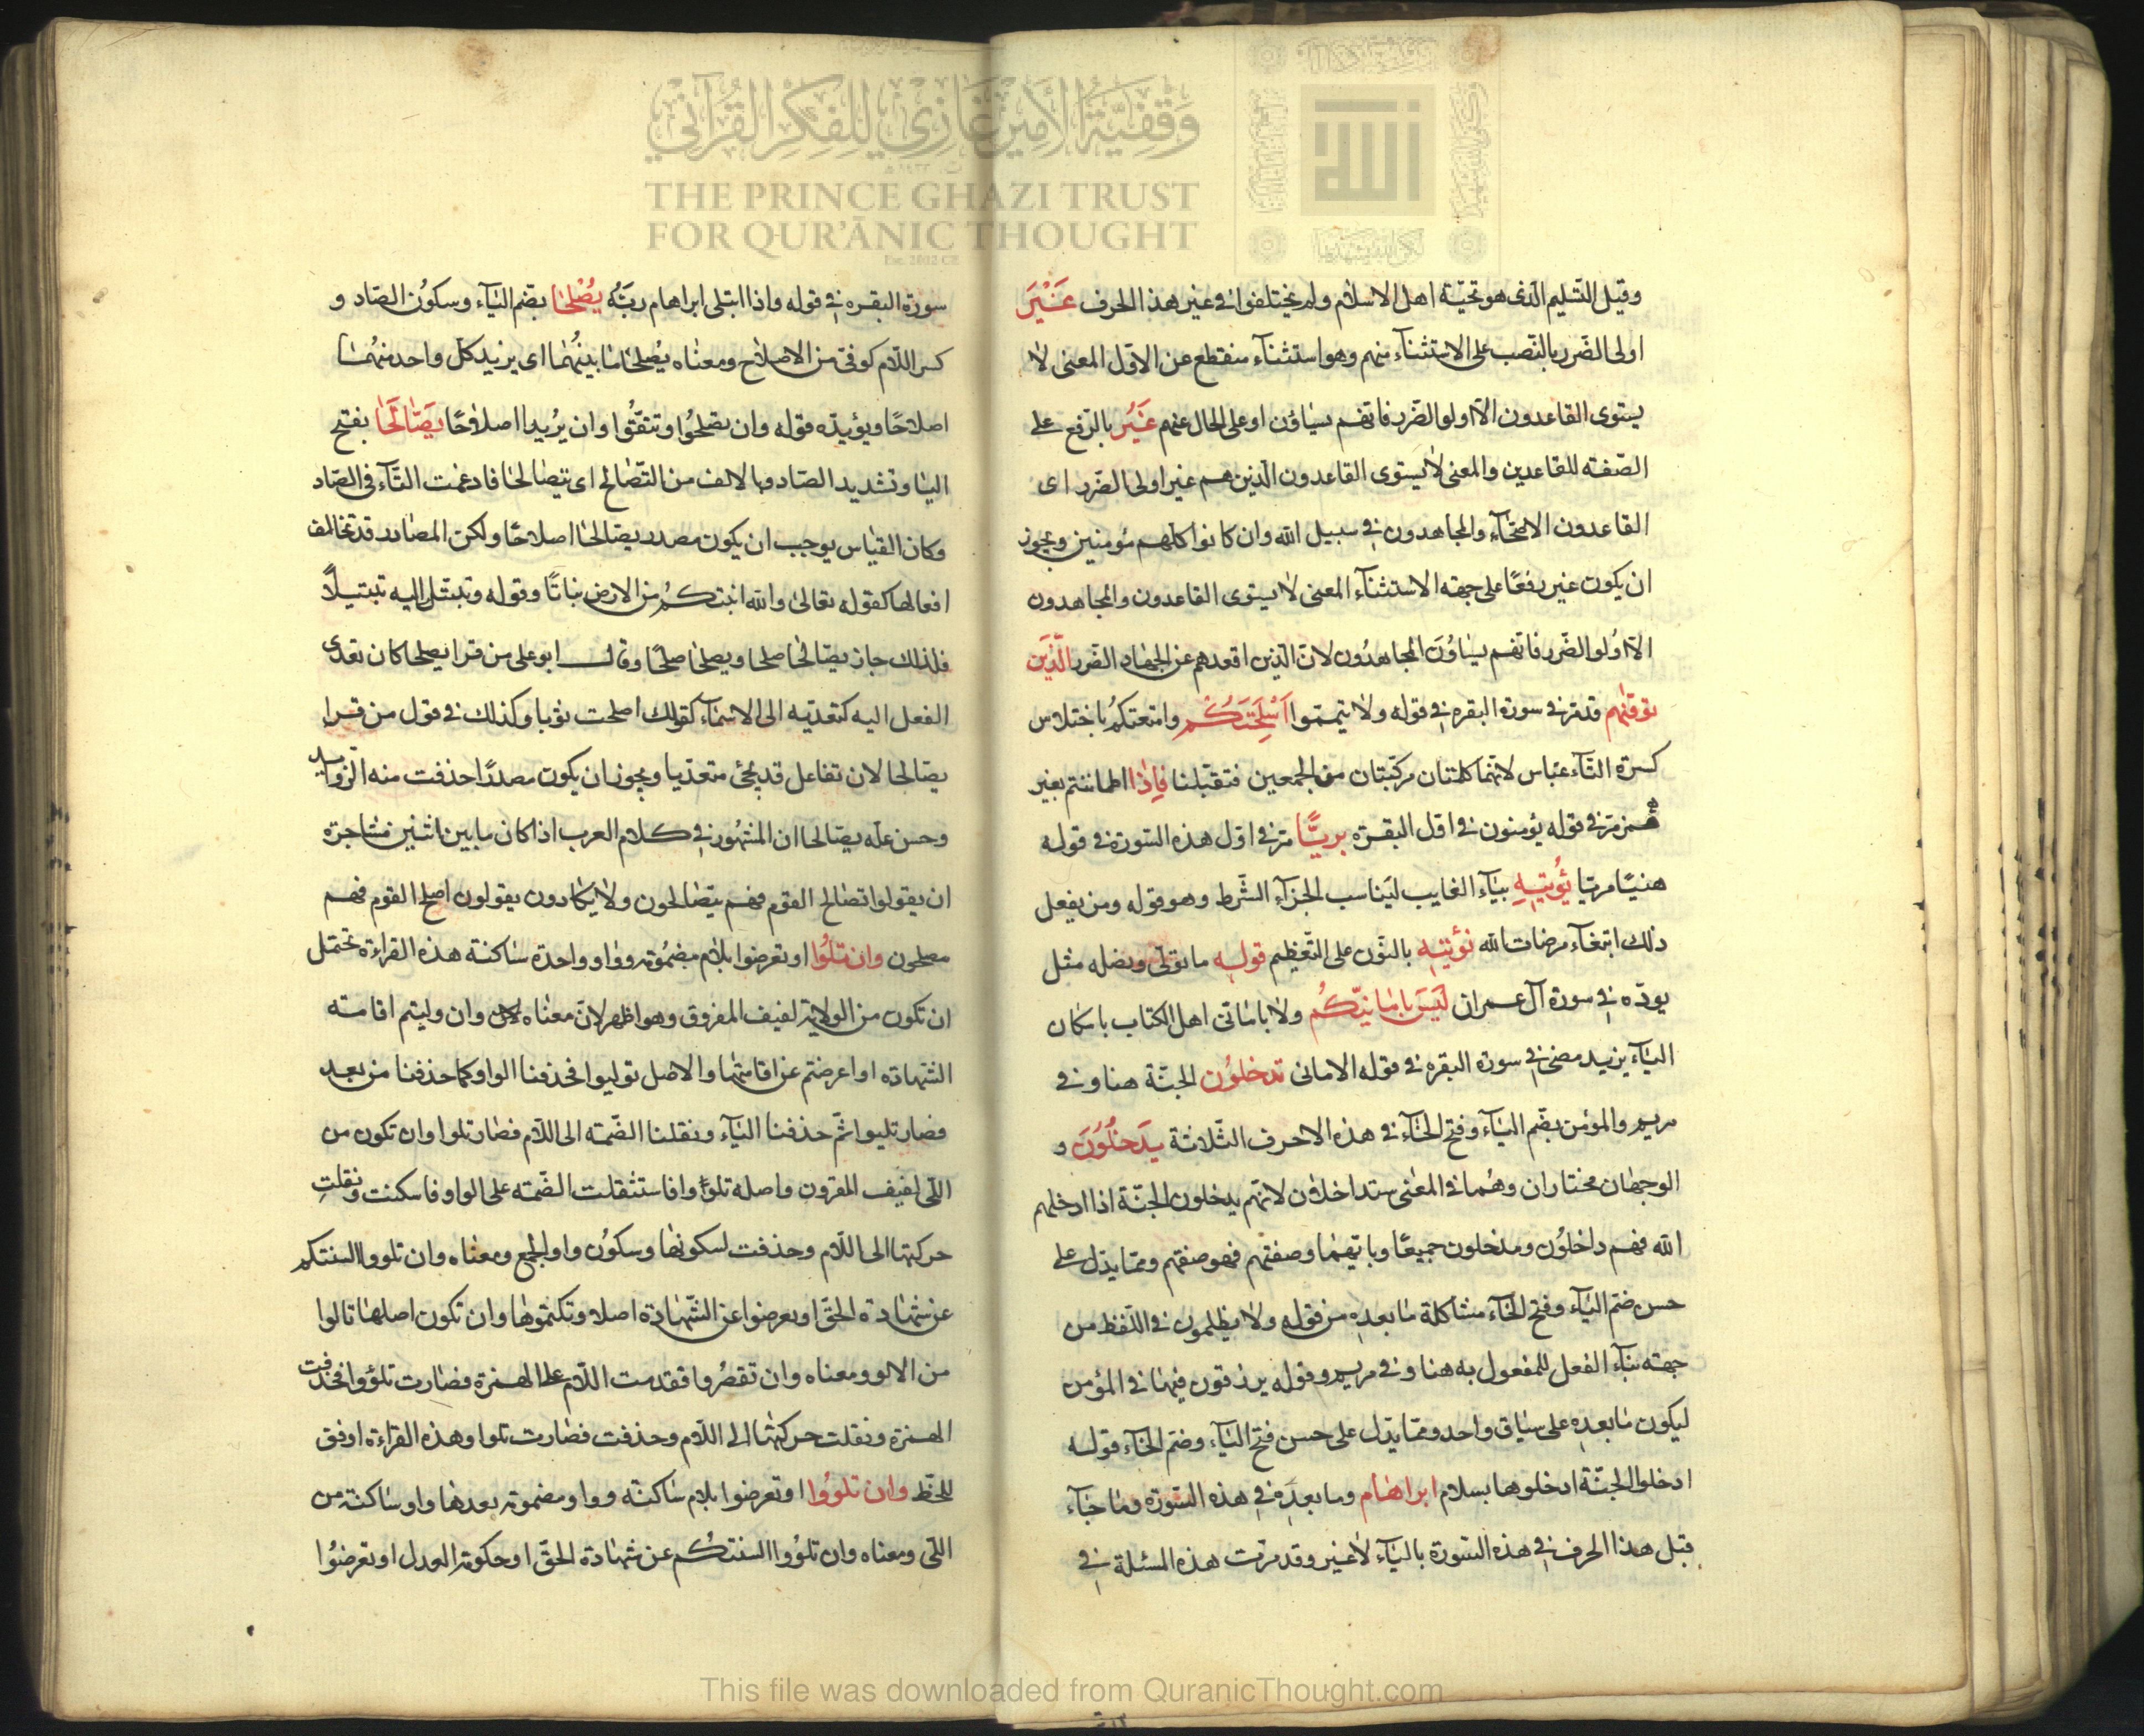 وقفية الأمير غازي للفكر القرآني
THE PRINCE GHAZI TRUST
FOR QUR'ĀNIC THOUGHT
Est. 2012 CE
وقيل التسليم الذى هو تحيّة اهل الاسلام ولم يختلفوا فى غير هذا الحرف غَيْرَ
اولى الضّرر بالنّصب على الاستثنآء منهم وهو استثنآء منقطع عن الاوّل المعنى لا
يستوى القاعدون الّا اولو الضّرر فانّهم يساوون او على الحال عنهم غَيْرُ بالرّفع على
الصّفته للقاعدين والمعنى لا يستوى القاعدون الّذين هم غير اولى الضّرر اى
القاعدون الاصحّآء والمجاهدون فى سبيل الله وان كانوا كلّهم مؤمنين ويجوز
ان يكون غير رفعًا على جهته الاستثنآء المعنى لا يستوى القاعدون والمجاهدون
الّا اُولو الضّرر فانّهم يساوُونَ المجاهدُون لانّ الّذين اقعدهم عن الجهاد الضّرر الّذينَ
توفّٰهم قد مرّ فى سورة البقره فى قوله ولا تيمّموا اَسْلِحَتِكُم وامتعتكم باختلاس
كسرة التّآء عبّاس لانّهما كلمتان مركّبتان من الجمعين فتقبّلنا فاِذا اطماننتم بغير
همز مرّ فى قوله يؤمنون فى اوّل البقرة بريًّا مرّ فى اوّل هذه السّورة فى قوله
هنيًّا مريّا يُؤتيهِ بيآء الغايب ليناسب الجزآء الشّرط وهو قوله ومن يفعل
ذلك ابتغآء مرضات الله نؤتيهِ بالنّون على التّعظيم قوله ما تولّى ونصله مثل
يودّه فى سورة آل عمران لَيسَ بامانيّكُم ولا بامانى اهل الكتاب باسكان
اليآء يزيد مضى فى سورة البقره فى قوله الامانى تدخلُون الجنّة هنا وفى
مريم والمؤمن بضّم اليآء وفتح الخآء فى هذه الاحرف الثّلاثة يَدخُلُونَ و
الوجهان مختاران وهُما فى المعنى ستداخلان لانّهم يدخلون الجنّة اذا ادخلهم
الله فهم داخلُون ومدخلون جميعًا وبايّهما وصفتهم فهو صفتهم وممّا يدّل على
حسن ضم اليآء وفتح الخآء مشاكلة ما بعده من قوله ولا يظلمون فى اللّفظ من
جهته بنآء الفعل للمفعول به هنا وفى مريم وقوله يرزقون فيها فى المؤمن
ليكون ما بعده على سياق واحد وممّا يدّل على حسن فتح اليآء وضم الخآء قوله
ادخلوا الجنّة ادخلوها بسلام ابراهام وما بعده فى هذه السّورة وما جآء
قبل هذا الحرف فى هذه السّورة باليآء لا غير وقد مرّت هذه المسئلة فى
سورة البقره فى قوله واذا ابتلى ابراهام ربّهُ يُصْلِحَا بضم اليآء وسكوُن الصّاد و
كسر اللّام كوفى من الاصلاح ومعناه يُصلحا ما بينُهما اى يزيد كل واحد منهُما
اصلاحًا ويؤيدّه قوله وان تصلحُوا وتتقّوا وان يُريدا اصلاحًا يَصَّالَحَا بفتح
اليا وتشديد الصّاد وبالالف من التّصالح اى يتصالحا فادغمت التّآء فى الصّاد
وكان القياس يوجب ان يكون مصدر يصّالحا اصلاحًا ولكن المصادر قد تخالف
افعالها كقوله تعالى والله انبتكم من الارض نباتًا وقوله وتبتّل اليه تبتيلًا
فلذلك جاز يصّالحا صلحا ويصلحا صلحًا وقال ابو على من قرا يصلحا كان تعدى
الفعل اليه كتعديّه الى الاسمآء كقولك اصلحت ثوبا وكذلك فى قول من قرا
يصّالحا لان تفاعل قد يجئ متعدّيا ويجوز ان يكون مصدرًا حذفت منه الزّوايد
وحسن علّه يصّالحا ان المشهُور فى كلام العرب اذا كان ما بين اثنين مشاجرة
ان يقولوا تصالح القوم فهم يتصّالحون ولا يكادون يقولون اصلح القوم فهم
مصلحون وان تلُوا او تعرضوا بلام مضمُومة وواو واحدة ساكنة هذه القراءة تحتمل
ان تكون من الولاية لفيف المفروق وهو اظهر لانّ معناه وان وليتم اقامته
الشهادة او اعرضتم عن اقامتها والاصل توليوا فحذفنا الواو كما حذفنا من يعد
فصار تليوا ثمّ حذفنا اليآء ونقلنا الضّمته الى اللّام فصار تلوا وان تكون من
اللّى لفيف المقرون واصله تلوُوا فاستثقلت الضّمته على الواو فاسكنت ونقلت
حركتها الى اللّام وحذفت لسكونها وسكوُن واو الجمع ومعناه وان تلووا السنتكم
عن شهادة الحقّ او تعرضوا عن الشّهادة اصلا وتكتموها وان تكون اصلها تالوا
من الالو ومعناه وان تقصرُوا فقدمت اللّام على الهمزة فصارت تلؤوا فحذفت
الهمزة ونقلت حركتها الى اللّام وحذفت فصارت تلوا وهذه القراءة اوفق
للخّط وان تلووُا او تعرضوا بلام ساكنّه وواو مضمومة بعدها واو ساكنة من
اللّى ومعناه وان تلوُوا السنتكُم عن شهادة الحقّ او حكومة العدل او تعرضوُا
This file was downloaded from QuranicThought.com